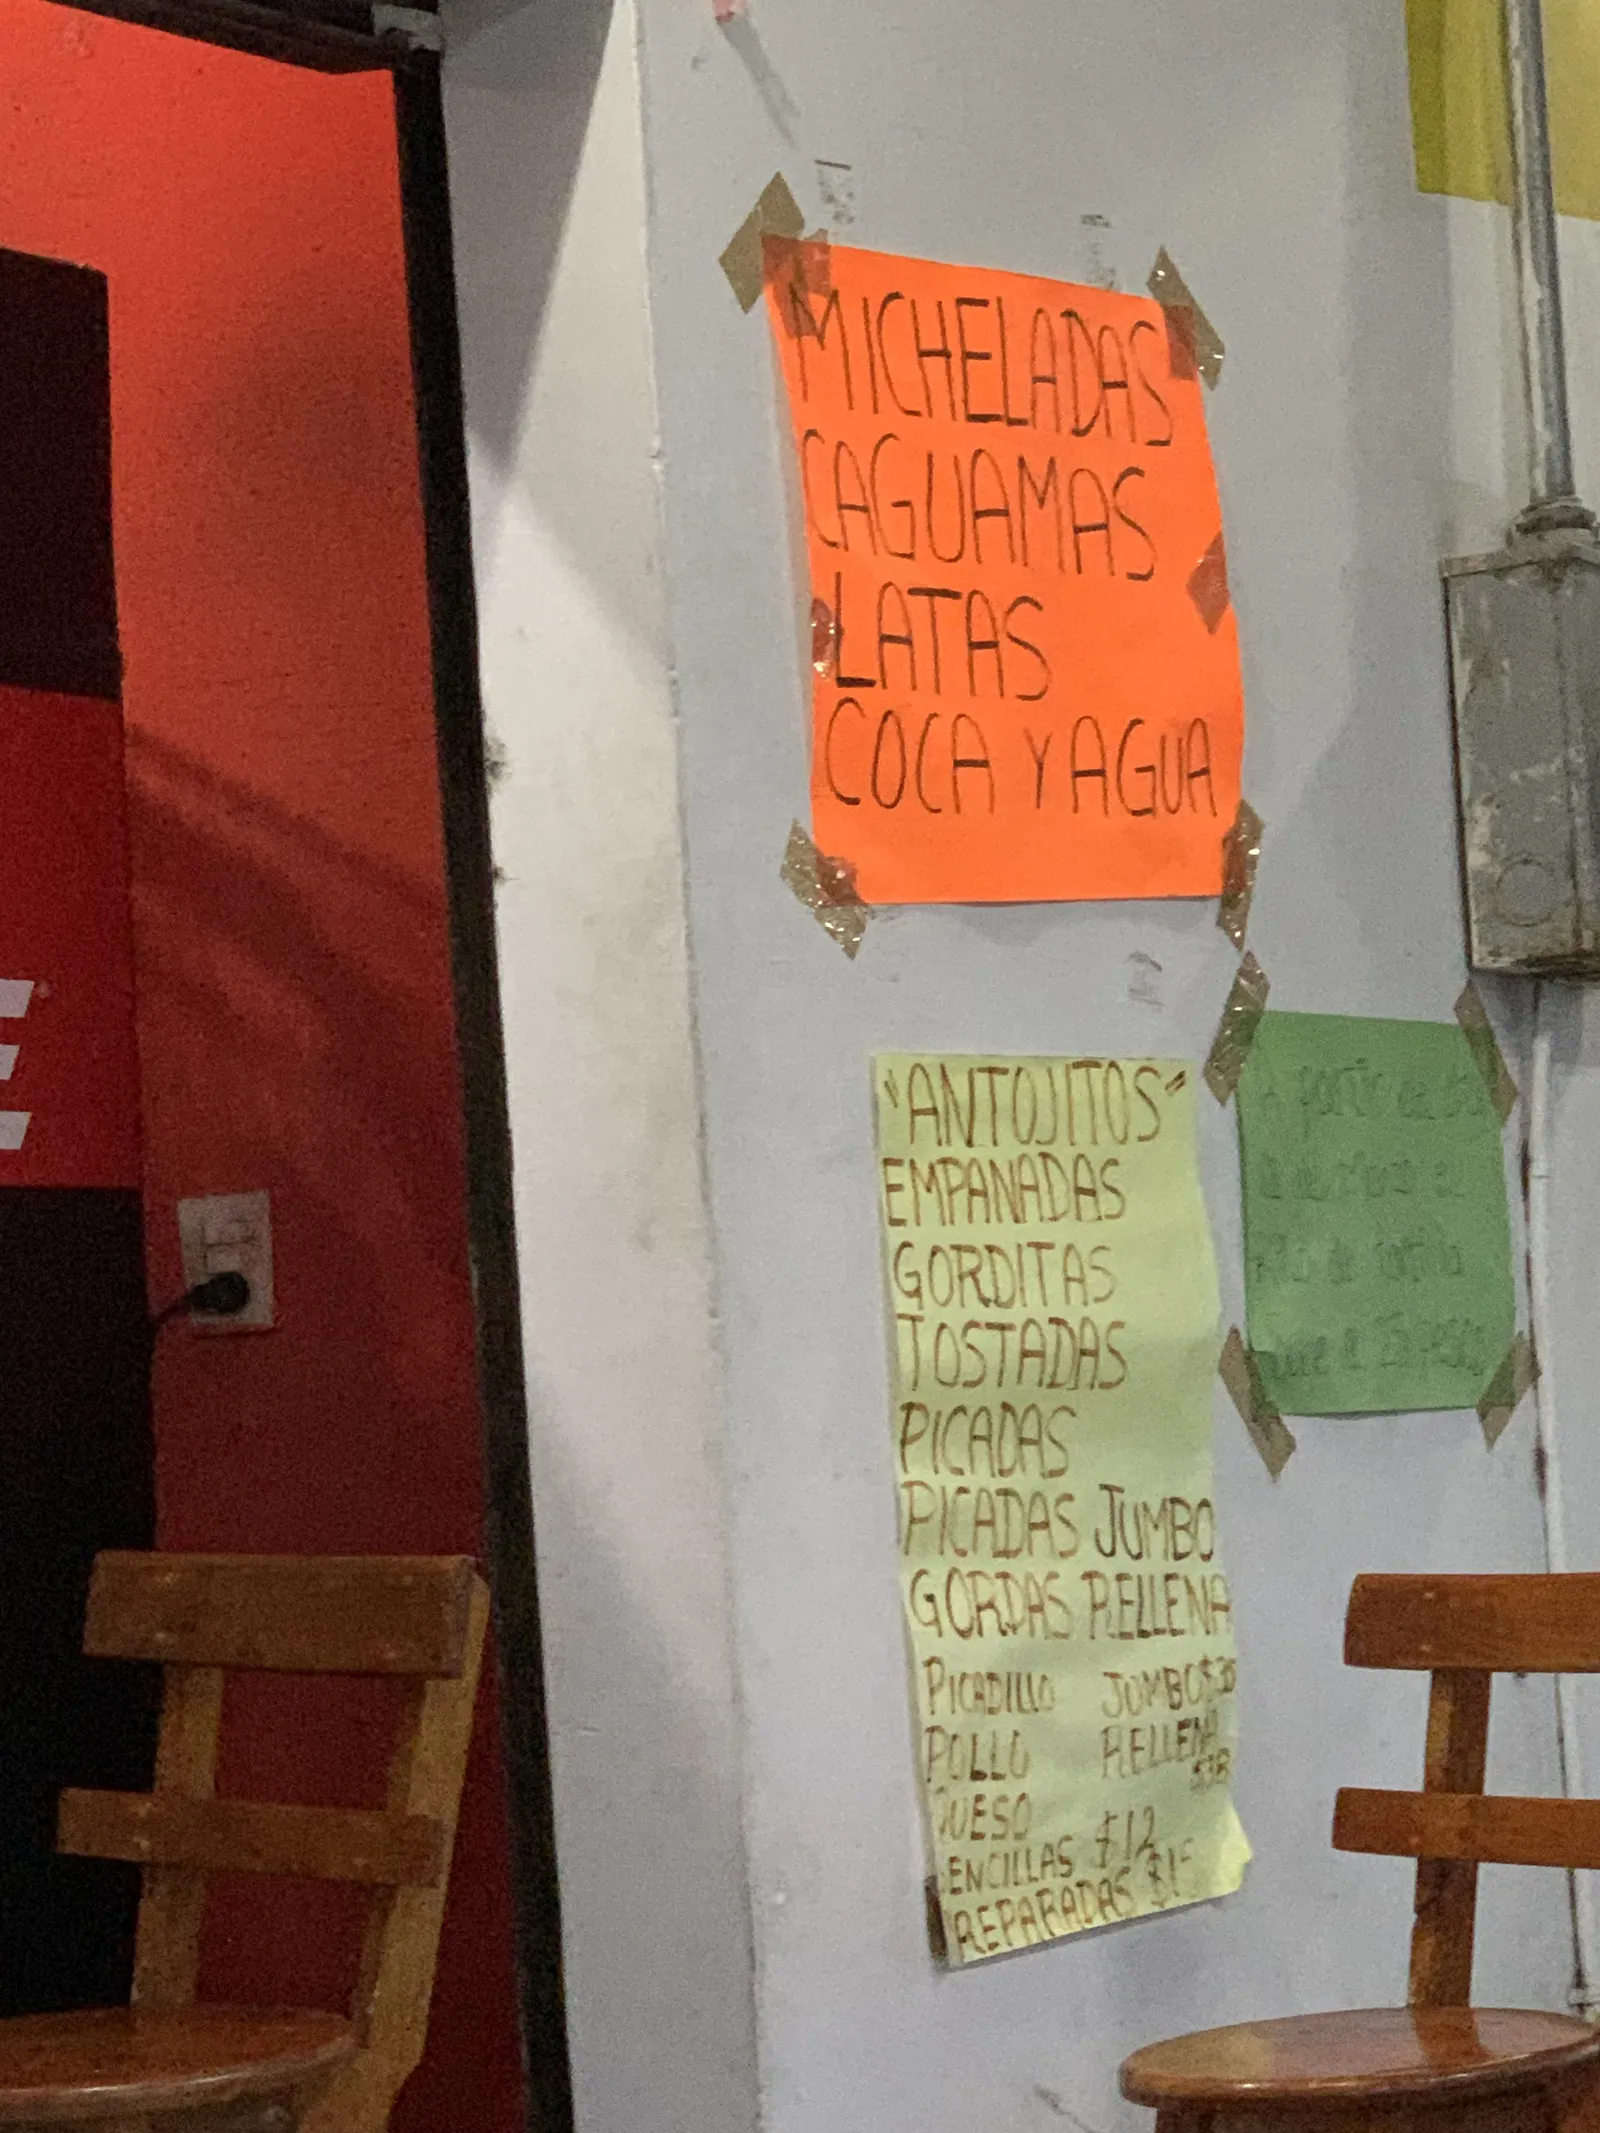 MICHELADAS
CAGUAMAS
LATAS
COCA Y AGUA
"ANTOJITOS"
EMPANADAS
GORDITAS
TOSTADAS
PICADAS
PICADAS JUMBO
GORDAS RELLENA
PICADILLO JUMBO
POLLO RELLENA
QUESO
SENCILLAS $12
PREPARADAS
E